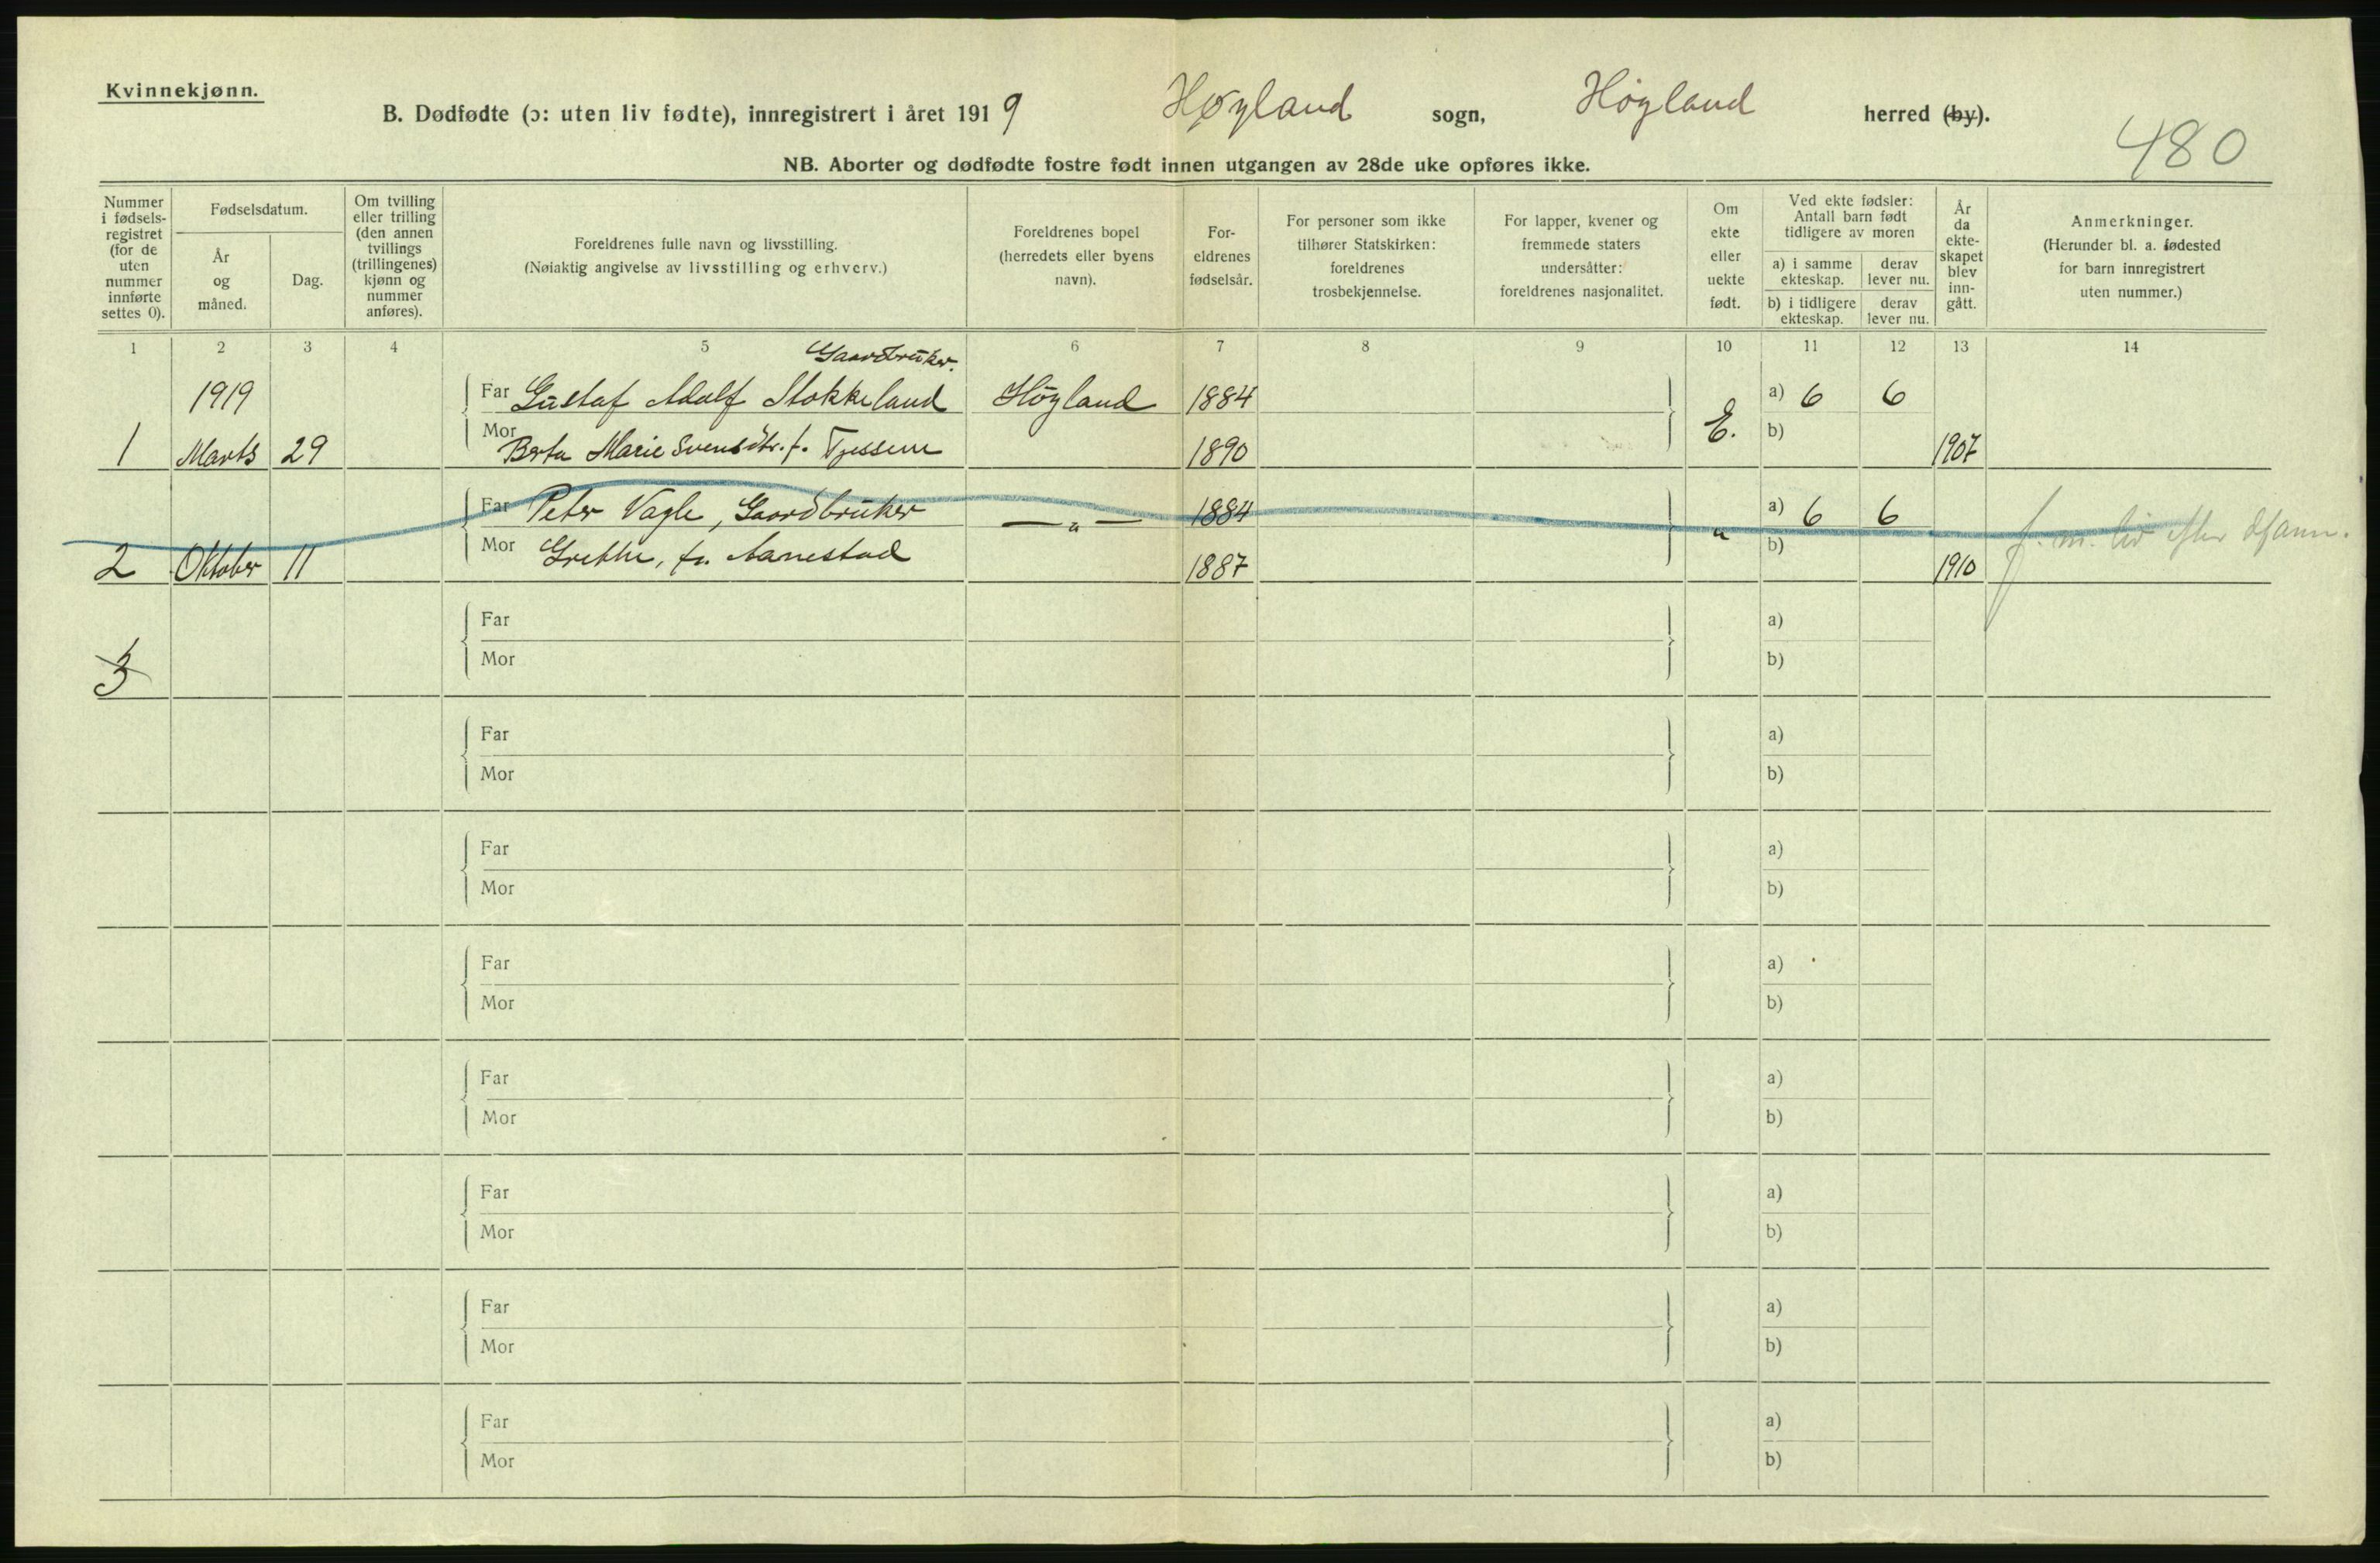 Kvinnekjønn.
B. Dødfødte (ɔ: uten liv fødte), innregistrert i året 1919 Høyland sogn, Höyland herred (by).
480
NB. Aborter og dødfødte fostre født innen utgangen av 28de uke opføres ikke.
Nummer i fødsels-registret (for de uten nummer innførte settes 0).
Fødselsdatum.
År og måned.
Dag.
Om tvilling eller trilling (den annen tvillings (trillingenes) kjønn og nummer anføres).
Foreldrenes fulle navn og livsstilling.
(Nøiaktig angivelse av livsstilling og erhverv.)
Foreldrenes bopel (herredets eller byens navn).
For-eldrenes fødselsår.
For personer som ikke tilhører Statskirken: foreldrenes trosbekjennelse.
For lapper, kvener og fremmede staters undersåtter: foreldrenes nasjonalitet.
Om ekte eller uekte født.
Ved ekte fødsler: Antall barn født tidligere av moren
a) i samme ekteskap.
derav lever nu.
b) i tidligere ekteskap.
derav lever nu.
År da ekte-skapet blev inn-gått.
Anmerkninger.
(Herunder bl. a. fødested for barn innregistrert uten nummer.)
1 2 3 4 5 6 7 8 9 10 11 12 13 14
Gaardbruker.
1919 Far Gustaf Adolf Stokkeland Höyland 1884 E. a) 6 6
1 Marts 29 Mor Berta Marie Svensdtr. f. Tjessem 1890 b) 1907
Far Peter Vagle, Gaardbruker — „ — 1884 „ a) 6 6
f. m. liv efter
2 Oktober 11 Mor Grethe, f. Aanestad 1887 b) 1910
Far a)
3 Mor b)
Far a)
Mor b)
Far a)
Mor b)
Far a)
Mor b)
Far a)
Mor b)
Far a)
Mor b)
Far a)
Mor b)
Far a)
Mor b)